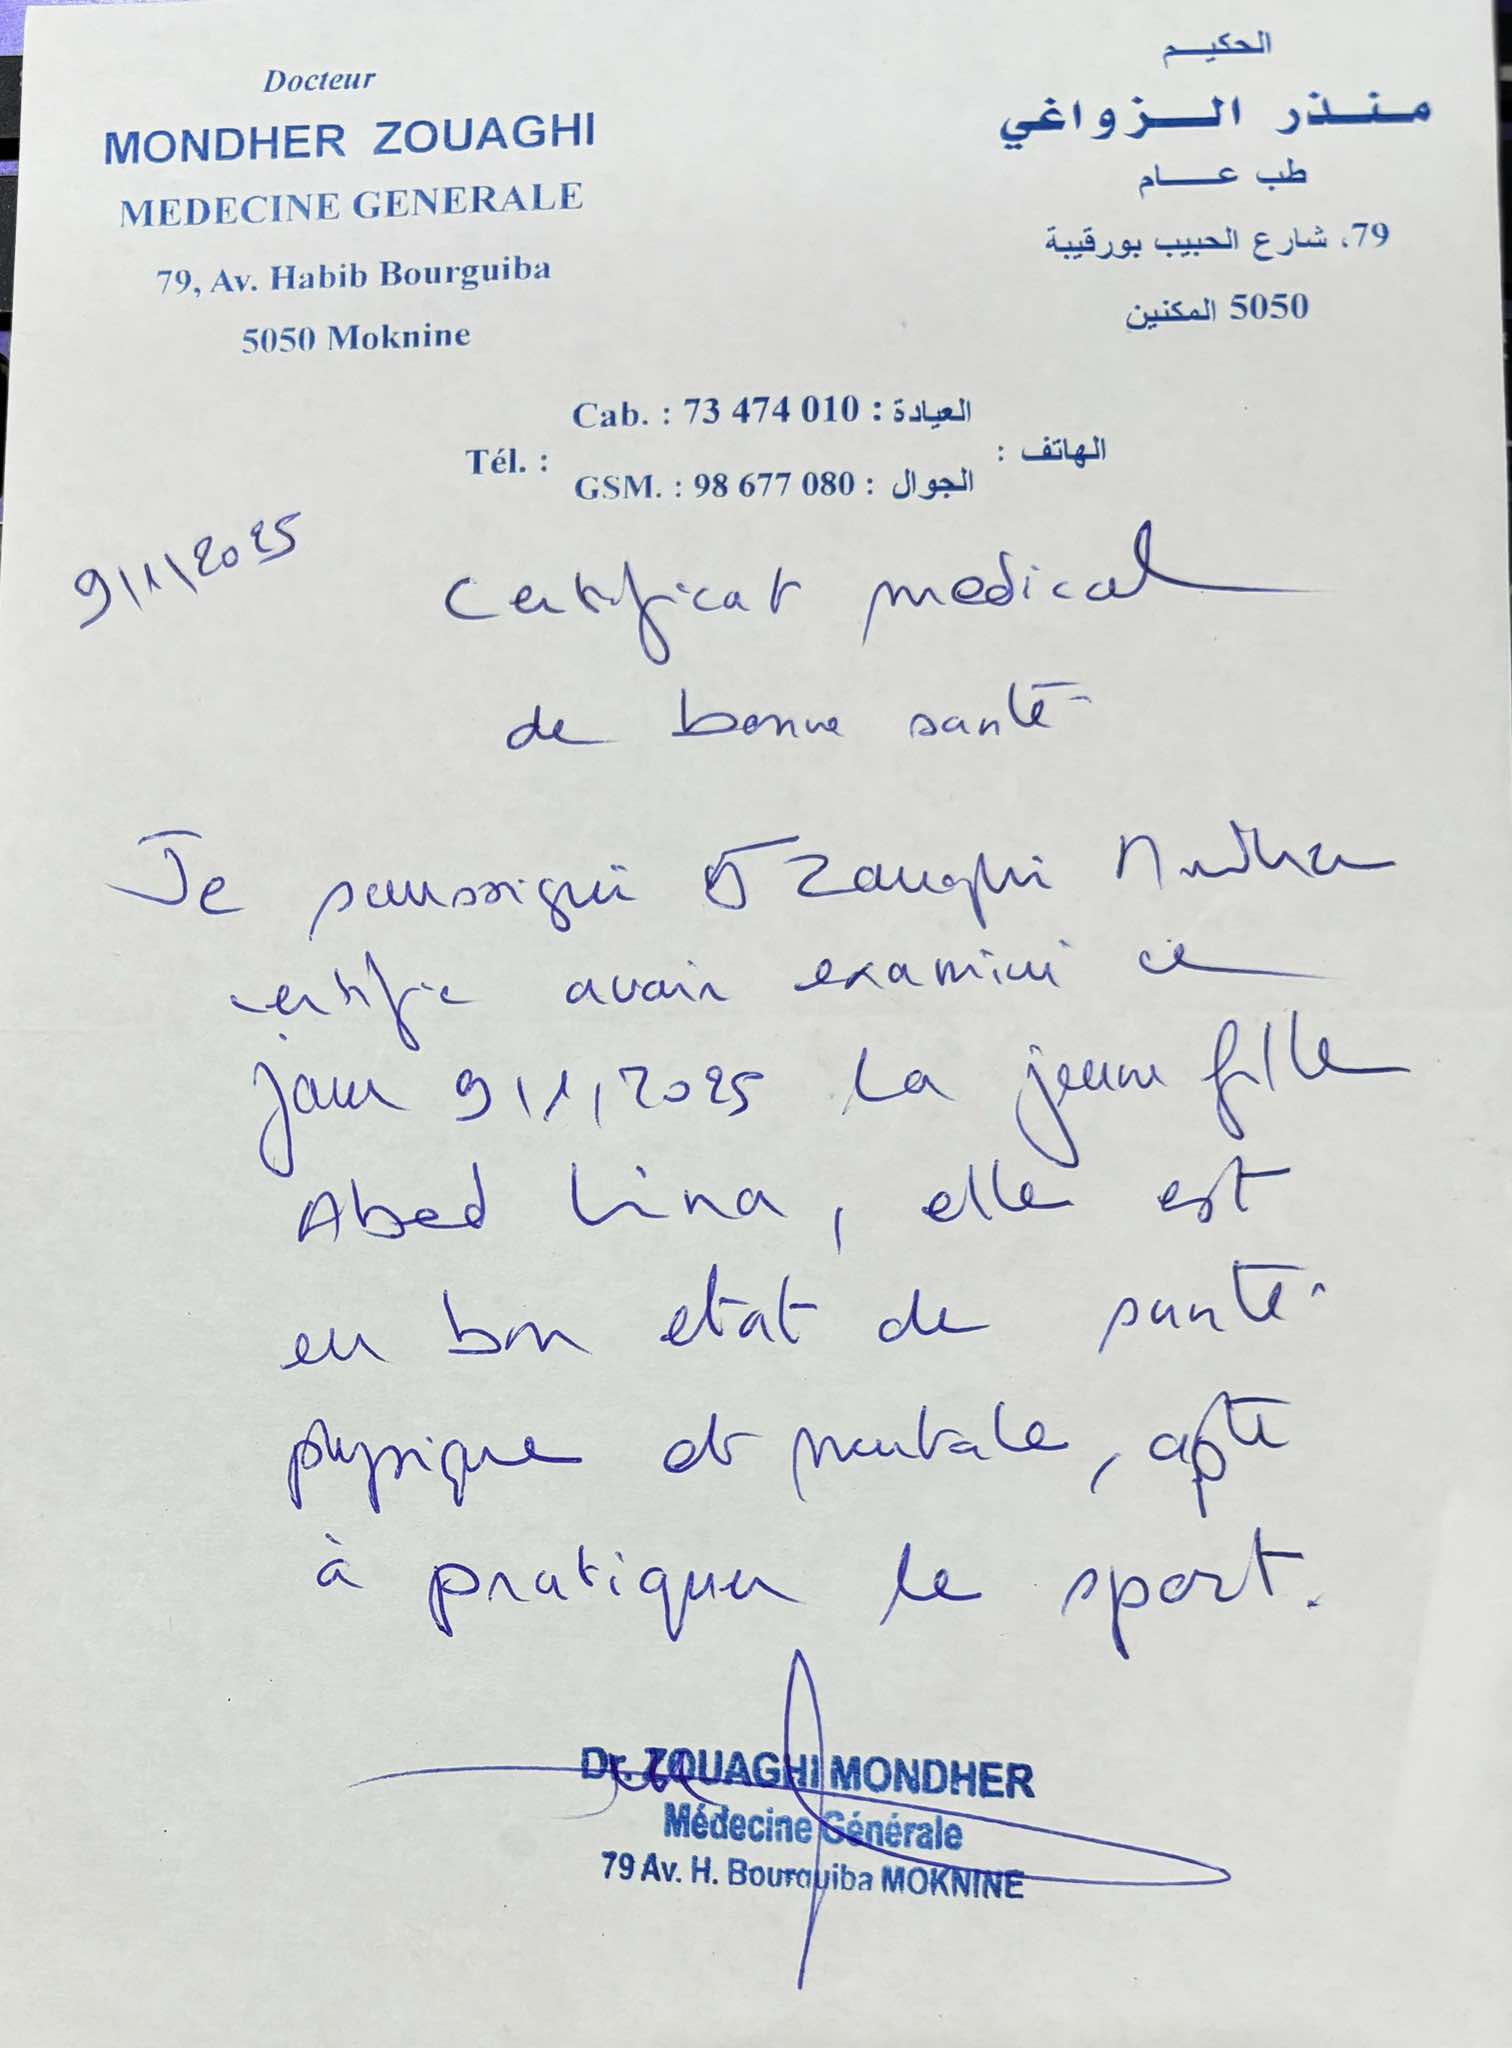 Docteur
MONDHER ZOUAGHI
MEDECINE GENERALE
79, Av. Habib Bourguiba
5050 Moknine
الحكيم
منذر الزواغي
طب عام
79، شارع الحبيب بورقيبة
5050 المكنين
Cab. : 73 474 010 : العيادة
Tél. : الهاتف :
GSM. : 98 677 080 : الجوال
9/1/2025
Certificat medical
de bonne santé
Je soussigné Dr Zouaghi Mondher
certifie avoir examiné ce
jour 9/1/2025 la jeune fille
Abed Lina, elle est
en bon etat de santé
physique et mentale, apte
à pratiquer le sport.
Dr. ZOUAGHI MONDHER
Médecine Générale
79 Av. H. Bourguiba MOKNINE